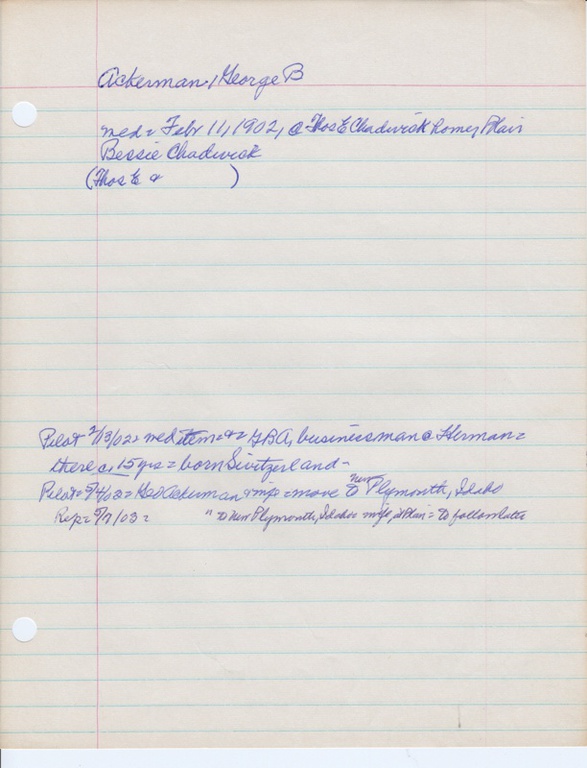 Ackerman, George B
med = Febr 11, 1902, @ Thos E Chadwick home, Blair
Bessie Chadwick
(Thos E &          )
Pilot 2/13/02 = wed item = & = GBA, businessman @ Herman =
there c. 15 yrs = born Switzerland -
Pilot = 5/4/03 = Geo Ackerman & wife = move to New Plymouth, Idaho
Rep = 5/7/03 =          " to New Plymouth, Idaho = wife, Blair = to follow later